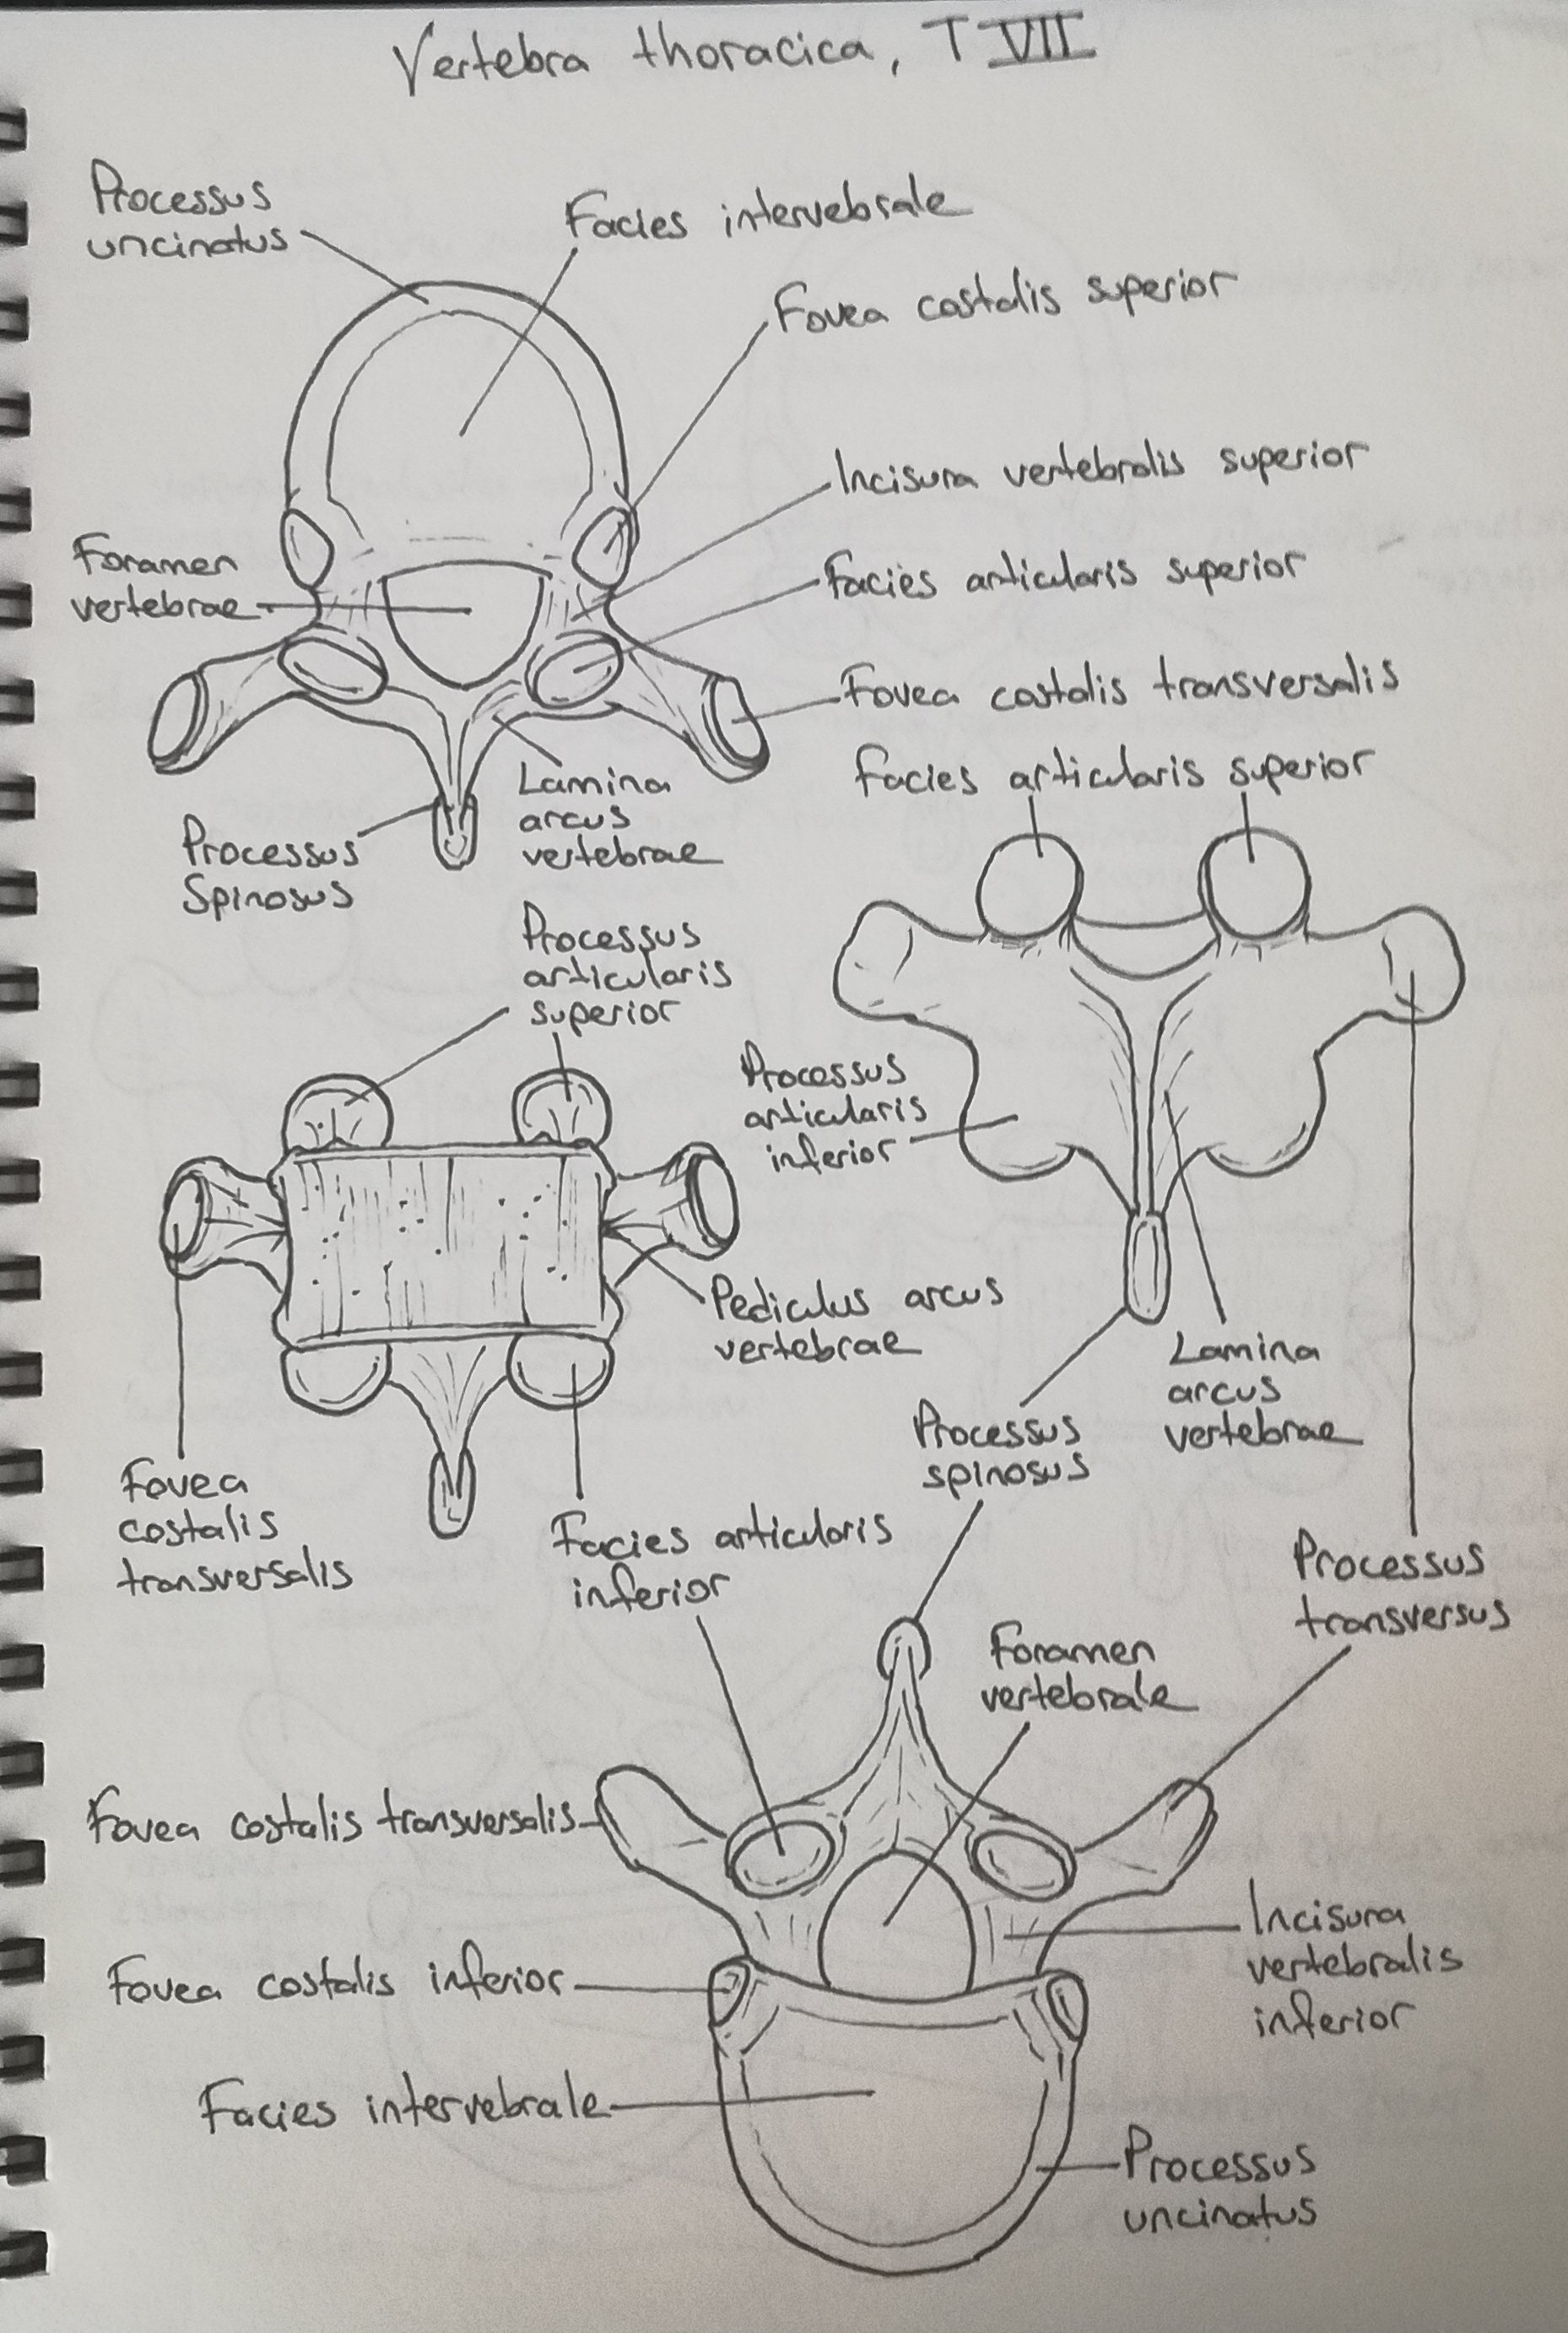 Vertebra thoracica, T VII
Processus
uncinatus
Facies intervebrale
Fovea costalis superior
Incisura vertebralis superior
Foramen
vertebrae
Facies articularis superior
Fovea costalis transversalis
Lamina
arcus
vertebrae
Processus
Spinosus
Facies articularis superior
Processus
articularis
superior
Processus
articularis
inferior
Pediculus arcus
vertebrae
Lamina
arcus
vertebrae
Processus
spinosus
Fovea
costalis
transversalis
Facies articularis
inferior
Processus
transversus
Foramen
vertebrale
Fovea costalis transversalis
Incisura
vertebralis
inferior
Fovea costalis inferior
Facies intervebrale
Processus
uncinatus